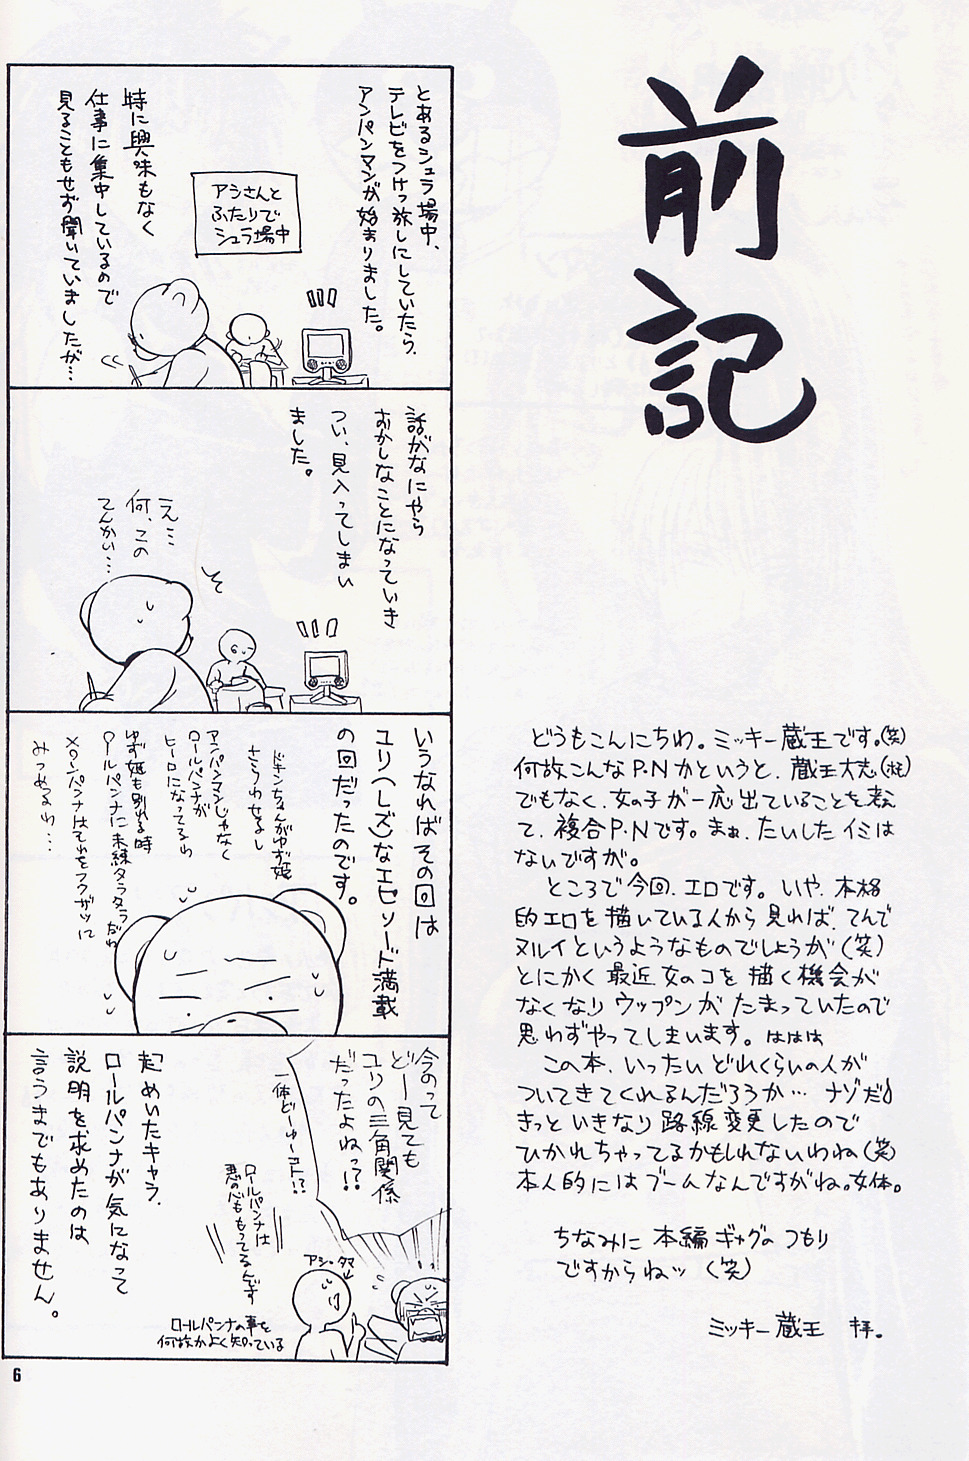 前記
どうもこんにちわ。ミッキー蔵王です。(笑)
何故こんなP.Nかというと、蔵王大志(本宅)
でもなく、女の子が一応出ていることを考え
て、複合P・Nです。まぁ、たいしたイミは
ないですが。
ところで今回、エロです。いや、本格
的エロを描いている人から見れば、てんで
ヌルイというようなものでしょうが(笑)
とにかく最近女のコを描く機会が
なくなりウップンがたまっていたので
思わずやってしまいます。ははは
この本、いったいどれくらいの人が
ついてきてくれるんだろうか…ナゾだ♪
きっといきなり路線変更したので
ひかれちゃってるかもしれないわね(笑)
本人的にはブームなんですがね。女体。
ちなみに本編ギャグのつもり
ですからねッ(笑)
ミッキー蔵王 拝。
とあるシュラ場中、
テレビをつけっ放しにしていたら、
アンパンマンが始まりました。
アシさんと
ふたりで
シュラ場中
特に興味もなく
仕事に集中しているので
見ることもせず聞いていましたが…
話がなにやら
おかしなことになっていき
つい、見入ってしまい
ました。
え…
何、この
てんかい…
いうなればその回は
ユリ(レズ)なエピソード満載
の回だったのです。
ドキンちゃんがゆず姫
さらわせるし
アンパンマンじゃなく
ロールパンナが
ヒーロになってるわ
ゆず姫も別れる時
ロールパンナに未練タラタラだわ
メロンパンナはそれをフクザツに
みつめるわ…
今のって
どー見ても
ユリの三角関係
だったよねっ?!
一体どーゆーコト!?
ロールパンナは
悪の心ももってるんです
アシ・タマ
ロールパンナの事を
何故かよく知っている
起めいたキャラ、
ロールパンナが気になって
説明を求めたのは
言うまでもありません。
6